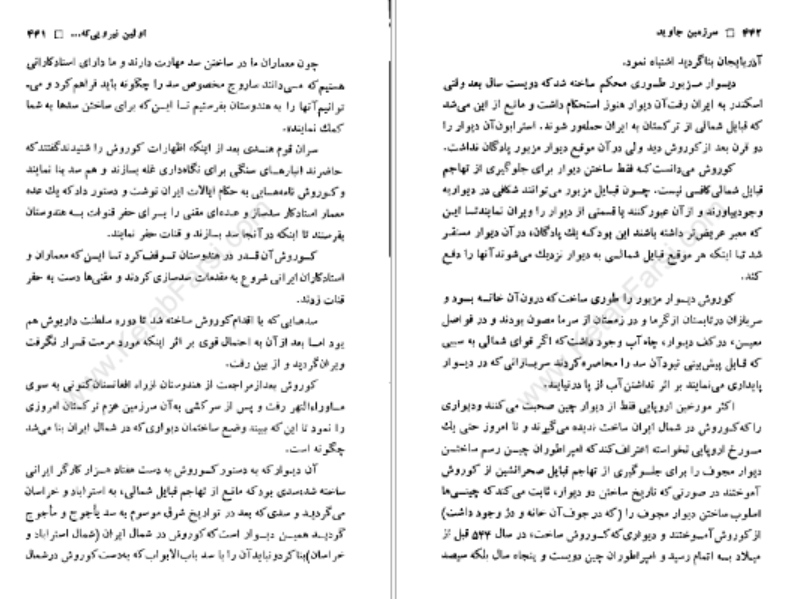 اولین نیرویی‌که... □ ۴۴۱
چون معماران ما در ساختن سد مهارت دارند و ما دارای استادکارانی
هستیم‌که می‌دانند ساروج مخصوص سد را چگونه باید فراهم‌کرد و می‌ـ
توانیم‌آنها را به هندوستان بفرستیم تا این‌که برای ساختن سدها به شما
کمك نمایند».
سران قوم هندی بعد از اینکه اظهارات کوروش را شنیدندگفتندکه
حاضرند انبارهای سنگی برای نگاه‌داری غله بسازند و هم سد بنا نمایند
وکوروش نامه‌هایی به حکام ایالات ایران نوشت و دستور دادکه یك عده
معمار استادکار سدساز و عده‌ای مقنی را برای حفر قنوات به هندوستان
بفرستند تا اینکه درآنجا سد بسازند و قنات حفر نمایند.
کوروش‌آن‌قدر در هندوستان توقف‌کرد تا این‌که معماران و
استادکاران ایرانی شروع به مقدمات سدسازی کردند و مقنی‌ها دست به حفر
قنات زدند.
سدهایی که با اقدام‌کوروش ساخته شد تا دوره سلطنت داریوش هم
بود اما بعد ازآن به احتمال قوی بر اثر اینکه مورد مرمت قرار نگرفت
ویران‌گردید و از بین رفت.
کوروش بعدازمراجعت از هندوستان ازراه افغانستان‌کنونی به سوی
ماوراءالنهر رفت و پس از سرکشی به‌آن سرزمین عزم ترکستان امروزی
را نمود تا این‌که ببیند وضع ساختمان دیواری‌که در شمال ایران بنا می‌شد
چگونه است.
آن دیوارکه به دستورکوروش به دست هفتاد هزار کارگر ایرانی
ساخته شده‌سدی بودکه مانع از تهاجم قبایل شمالی، به استراباد و خراسان
می‌گردید و سدی‌که بعد در تواریخ شرق موسوم به سد یأجوج و مأجوج
گردید همین دیوار است‌که‌کوروش در شمال ایران (شمال استراباد و
خراسان)بناکردونبایدآن را با سد باب‌الابواب‌که به‌دست‌کوروش درشمال
۴۴۲ □ سرزمین جاوید
آذربایجان بناگردید اشتباه نمود.
دیوار مزبور طوری محکم ساخته شدکه دویست سال بعد وقتی
اسکندر به ایران رفت‌آن دیوار هنوز استحکام داشت و مانع از این می‌شد
که قبایل شمالی از ترکستان به ایران حمله‌ور شوند. استرابون‌آن دیوار را
دو قرن بعد ازکوروش دید ولی درآن موقع دیوار مزبور پادگان نداشت.
کوروش می‌دانست‌که فقط ساختن دیوار برای جلوگیری از تهاجم
قبایل شمالی‌کافی نیست. چون قبایل مزبور می‌توانند شکافی در دیواربه
وجودبیاورند و ازآن عبورکنند یا قسمتی از دیوار را ویران نمایندتا این
که معبر عریض‌تر داشته باشند این بودکه یك پادگان، درآن دیوار مستقر
شد تا اینکه هر موقع قبایل شمالی به دیوار نزدیك می‌شوندآنها را دفع
کند.
کوروش دیوار مزبور را طوری ساخت‌که درون‌آن خانه بسود و
سربازان درتابستان ازگرما و در زمستان از سرما مصون بودند و در فواصل
معین، درکف دیوار، چاه‌آب وجود داشت‌که اگر قوای شمالی به سببی
که قابل پیش‌بینی نبودآن سد را محاصره‌کردند سربازانی‌که در دیوار
پایداری می‌نمایند بر اثر نداشتن‌آب از پا درنیایند.
اکثر مورخین اروپایی فقط از دیوار چین صحبت می‌کنند ودیواری
راکه‌کوروش در شمال ایران ساخت ندیده می‌گیرند و تا امروز حتی یك
مورخ اروپایی نخواسته اعتراف‌کندکه امپراطوران چین رسم ساختن
دیوار مجوف را برای جلوگیری از تهاجم قبایل صحرانشین از کوروش
آموختند در صورتی‌که تاریخ ساختن دو دیوار، ثابت می‌کندکه چینی‌ها
اسلوب‌ساختن دیوار مجوف را (که در جوف‌آن خانه و دژ وجود داشت)
ازکوروش‌آموختند و دیواری‌که‌کوروش ساخت، در سال ۵۴۴ قبل از
میلاد به اتمام رسید و امپراطوران چین دویست و پنجاه سال بلکه سیصد
www.KetabFarsi.com
www.KetabFarsi.com